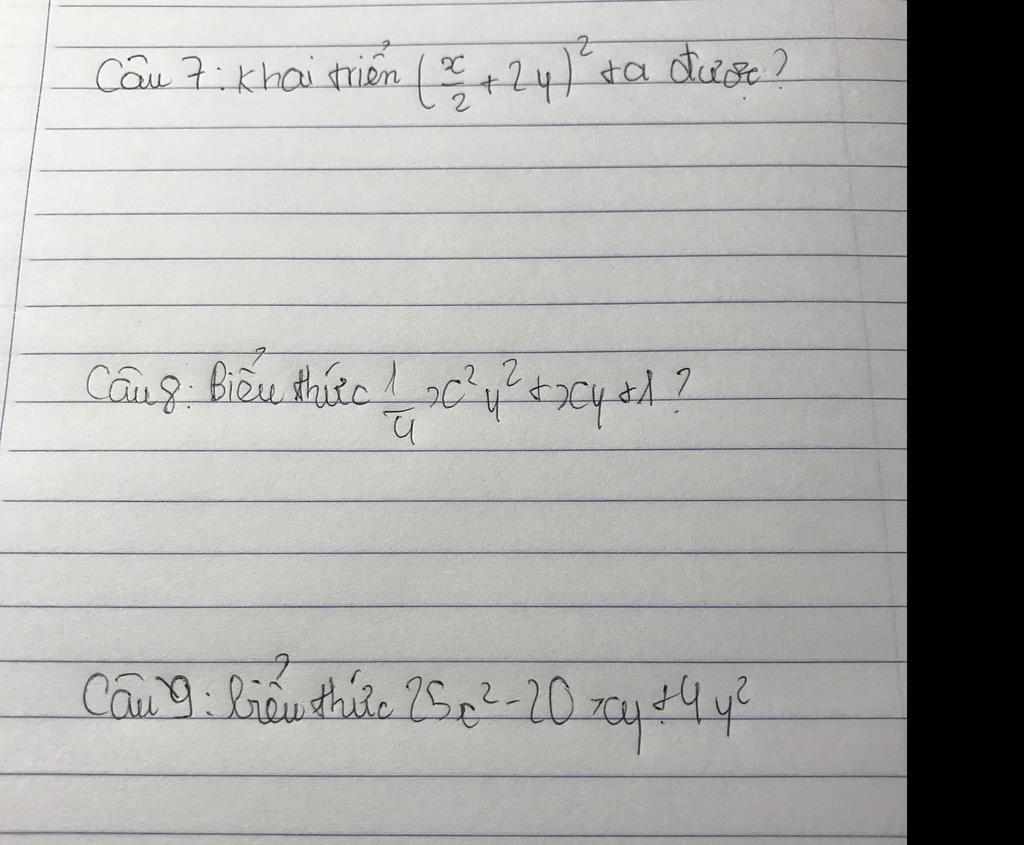 Câu 7: Khai triển (x/2 + 2y)² ta được?
Câu 8: Biểu thức 1/4 x²y² + xy + 1?
Câu 9: biểu thức 25x² - 20xy + 4y²